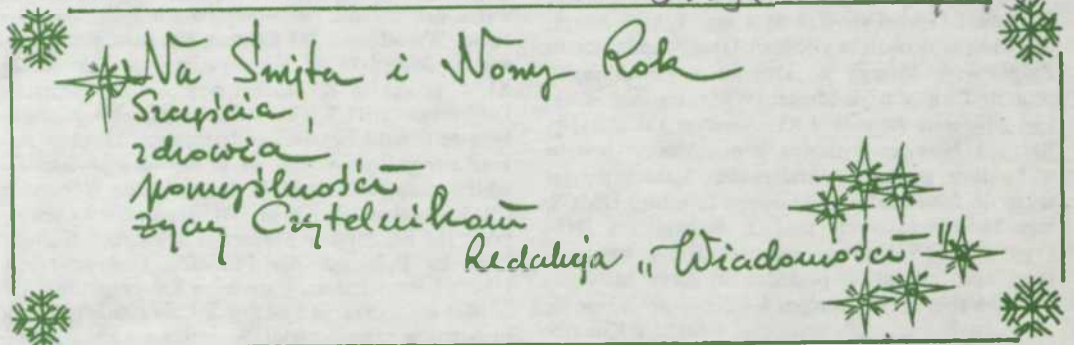 Na Święta i Nowy Rok
Szczęścia,
zdrowia
pomyślności
życzy Czytelnikom
Redakcja „Wiadomości"